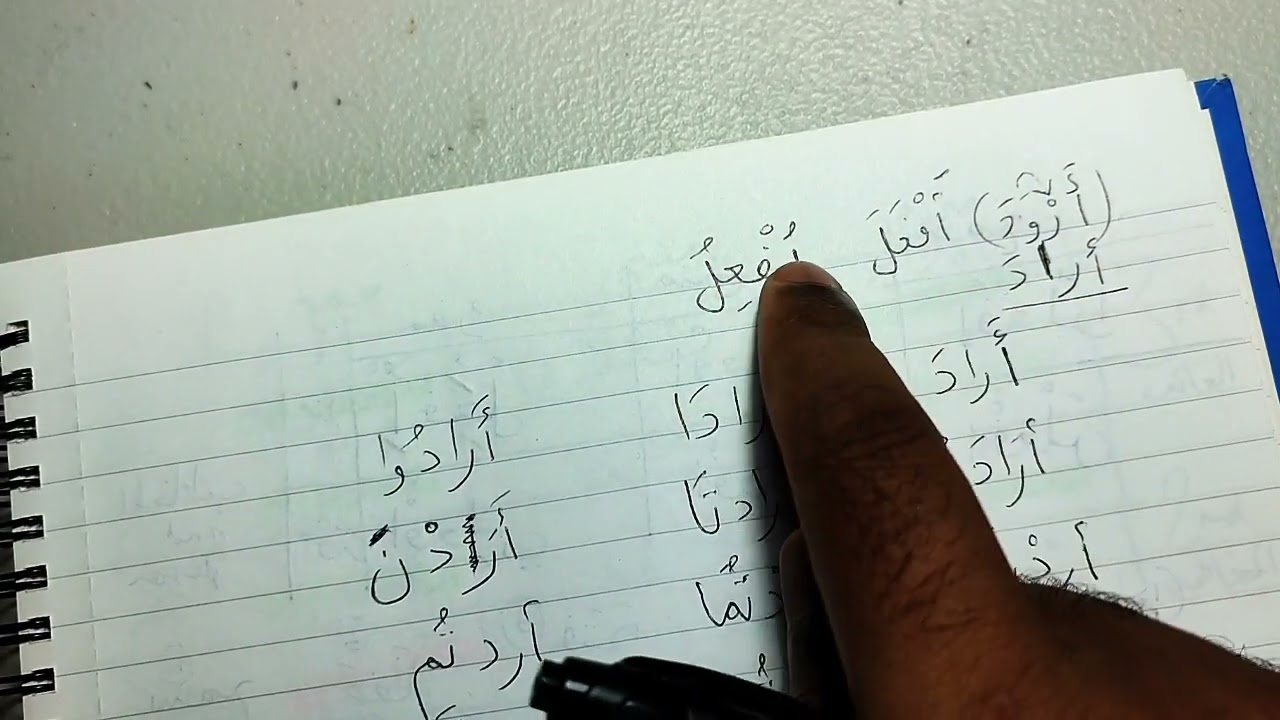 (أَرْوَدَ) أَفْعَلَ أُفْعِلُ
أرادَ
أَرادَ رادَا أَرَادُوا
أرَادَ رادتَا أَرَدْنَ
أردْ تُمَا أردتُم